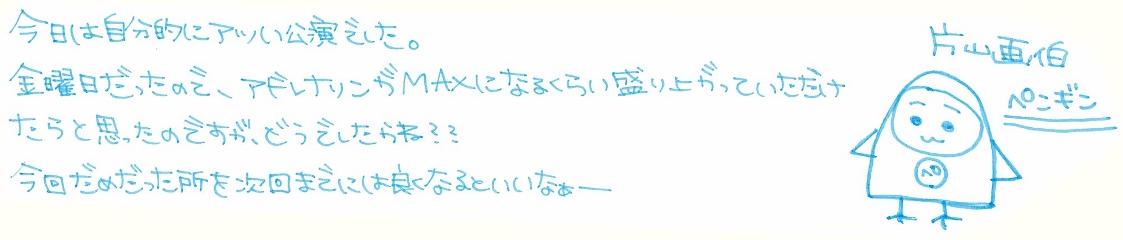 今日は自分的にアツい公演でした。
金曜日だったので、アドレナリンがMAXになるくらい盛り上がっていただけ
たらと思ったのですが、どうでしたかね??
今回だめだった所を次回までには良くなるといいなぁー
片山画伯
ペンギン
20